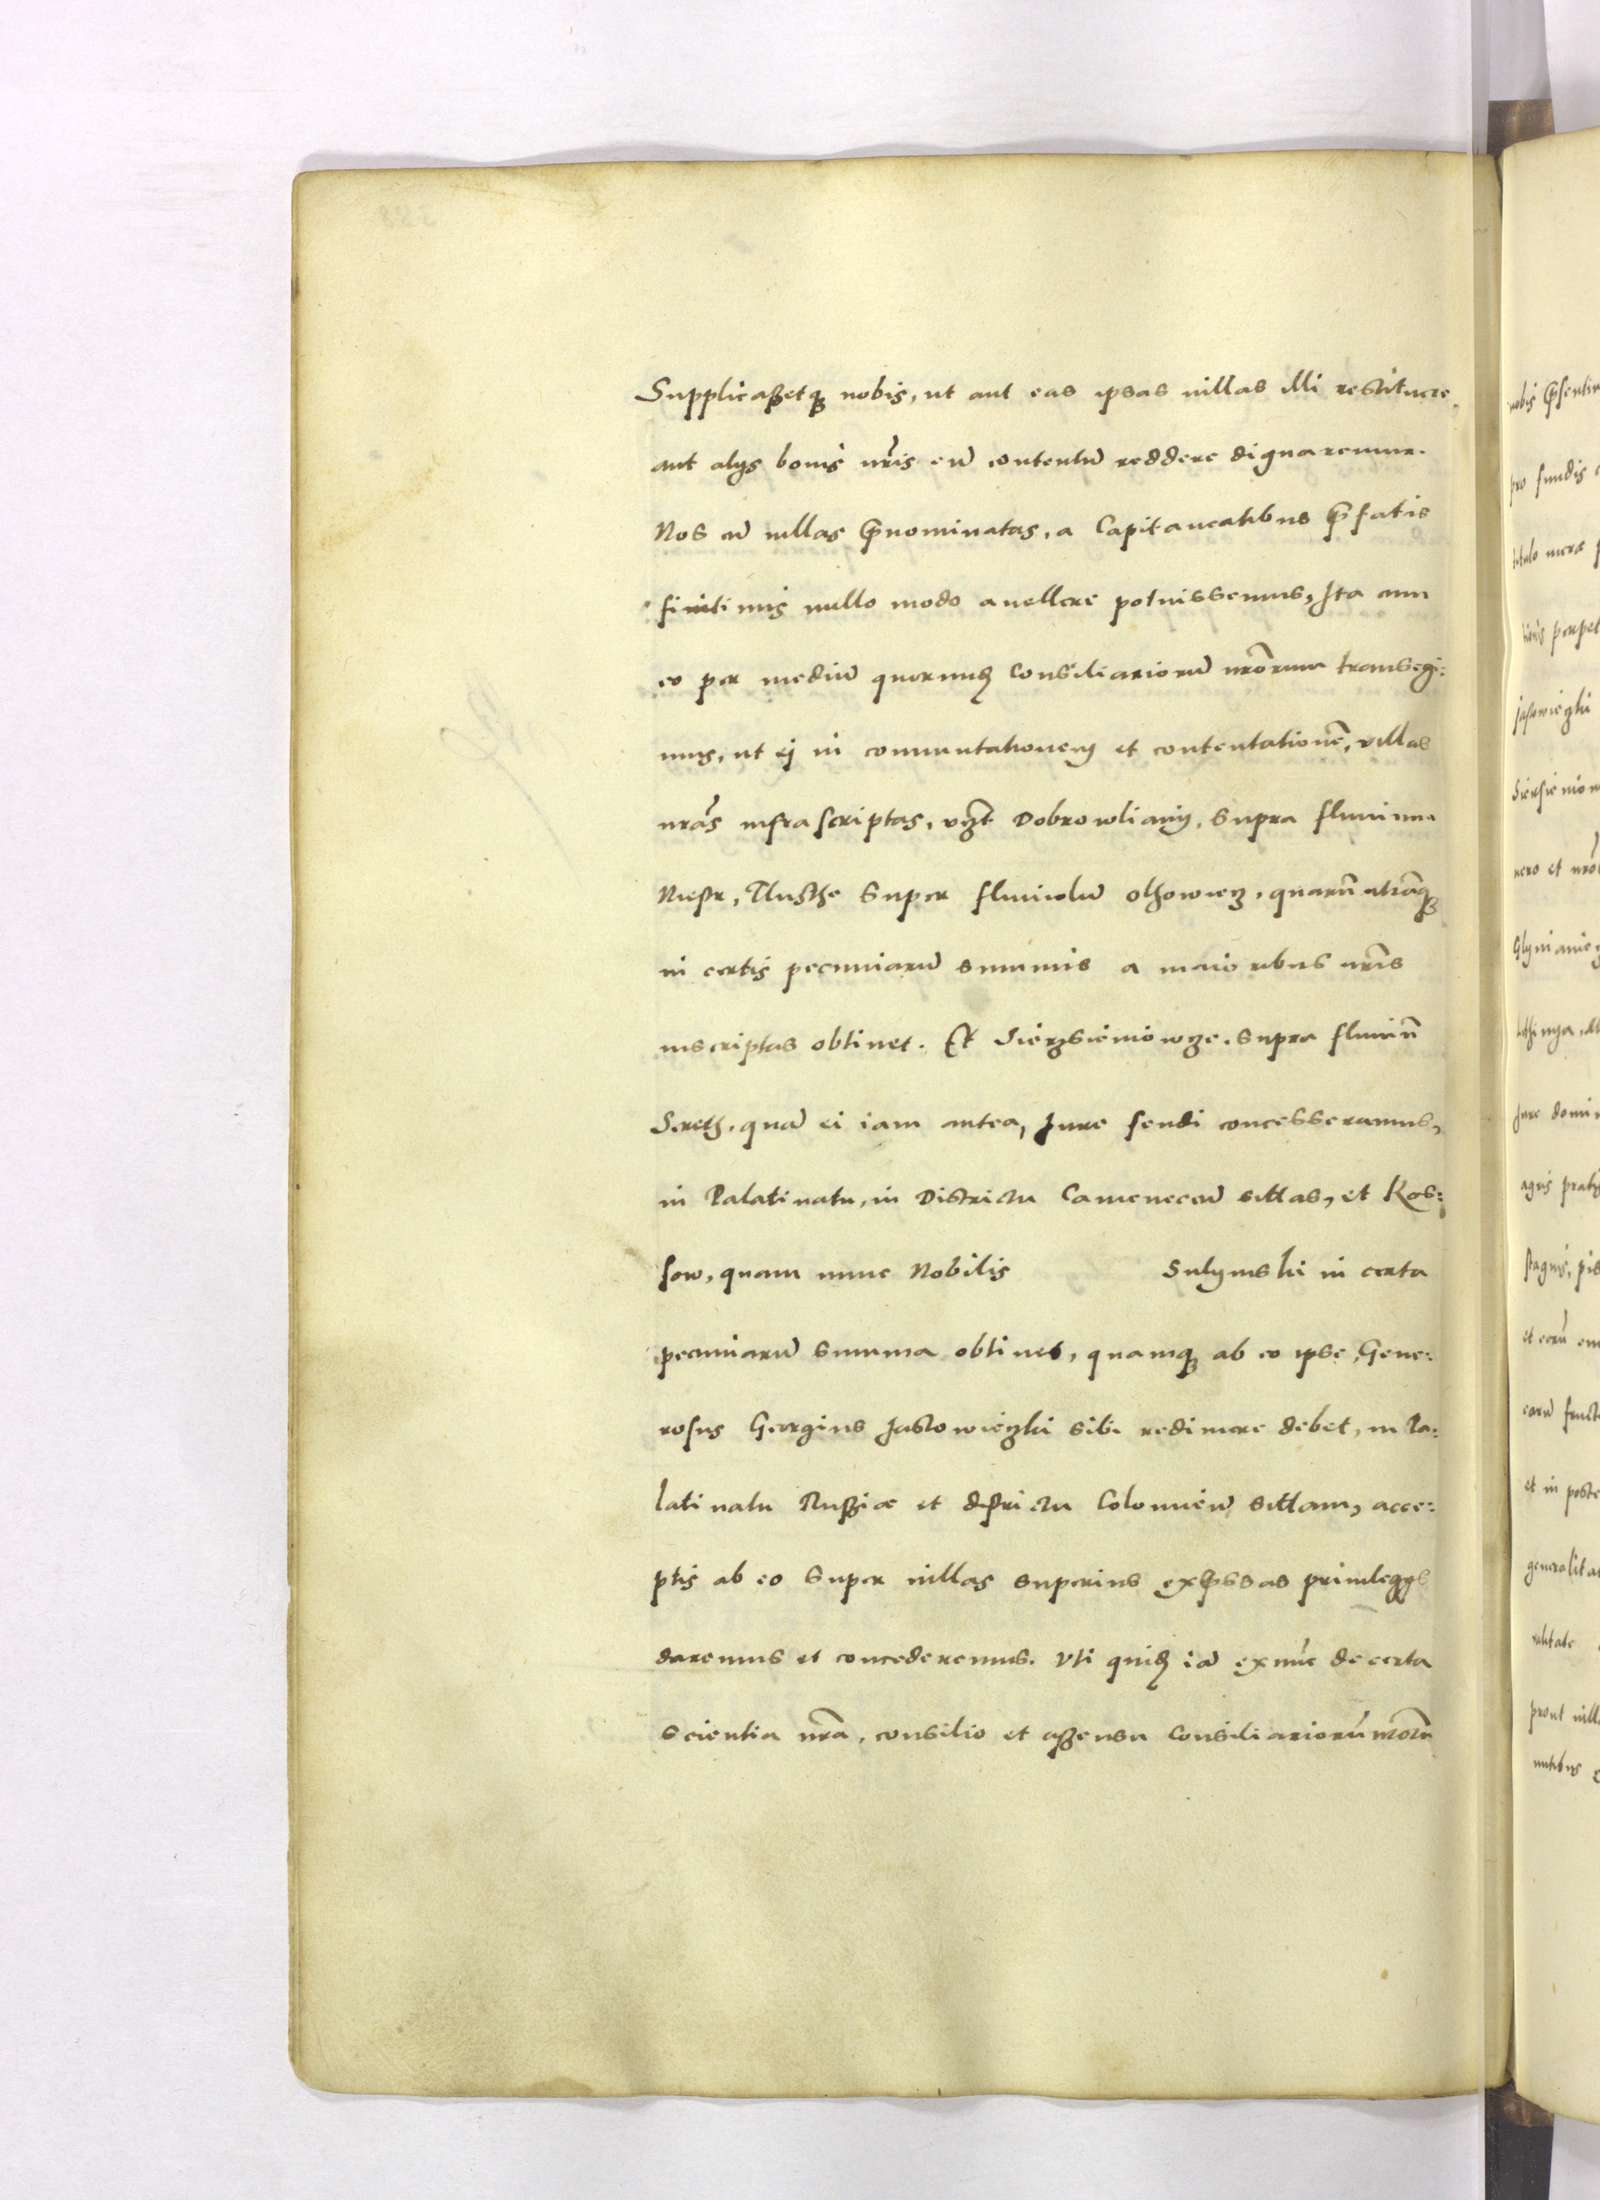 Supplicaßetq₃ nobis, ut aut eas ipsas uillas illi restituere,
aut alijs bonis nr̃is eũ contentũ reddere dignaremur.
Nos cũ uillas p̃nominatas, a Capitaneatibus p̃fatis
finitimis nullo modo auellere potuissemus, Ita cum
eo per mediũ quorundã Consiliariorũ nr̃orum transegi:
mus, ut ej in commutationem et contentationẽ, villas
nr̃as infra scriptas, vz̃t Dobrowliany, supra fluuium
Niestr, Tlusthe super fluuiolũ olhowiecz, quarũ utrãq₃
in certis pecuniarũ summis a maioribus nr̃is
inscriptas obtinet. Et Sierzsieniowcze, supra fluuiũ
Sereth, quã ei iam antea, Jure feudi concesseramus,
in Palatinatu, in Districtu Camenecen̄ sittas, et Kos:
sow, quam nunc Nobilis Sulymski in certa
pecuniarũ summa obtinet, quamq₃ ab eo ipse, Gene:
rosus Georgius Jaslowieczki sibi redimere debet, in Pa:
latinatu Rußiæ et districtu Colomien̄ sittam, acce:
ptis ab eo super uillas superius exp̃ssas priuilegijs
daremus et concederemus. Vti quidẽ iã ex nũc de certa
scientia nr̃a, consilio et aßensu Consiliariorũ nr̃orũ
nobis p̃sentir
pro fundis
titulo meræ
perpet
Jaslowieczki
Siersieniow
uero et nr̃o
Jure domin
agris pratis
stagnis, pis
et eorũ
earũ fruct
et in poste
generalita
prout uill